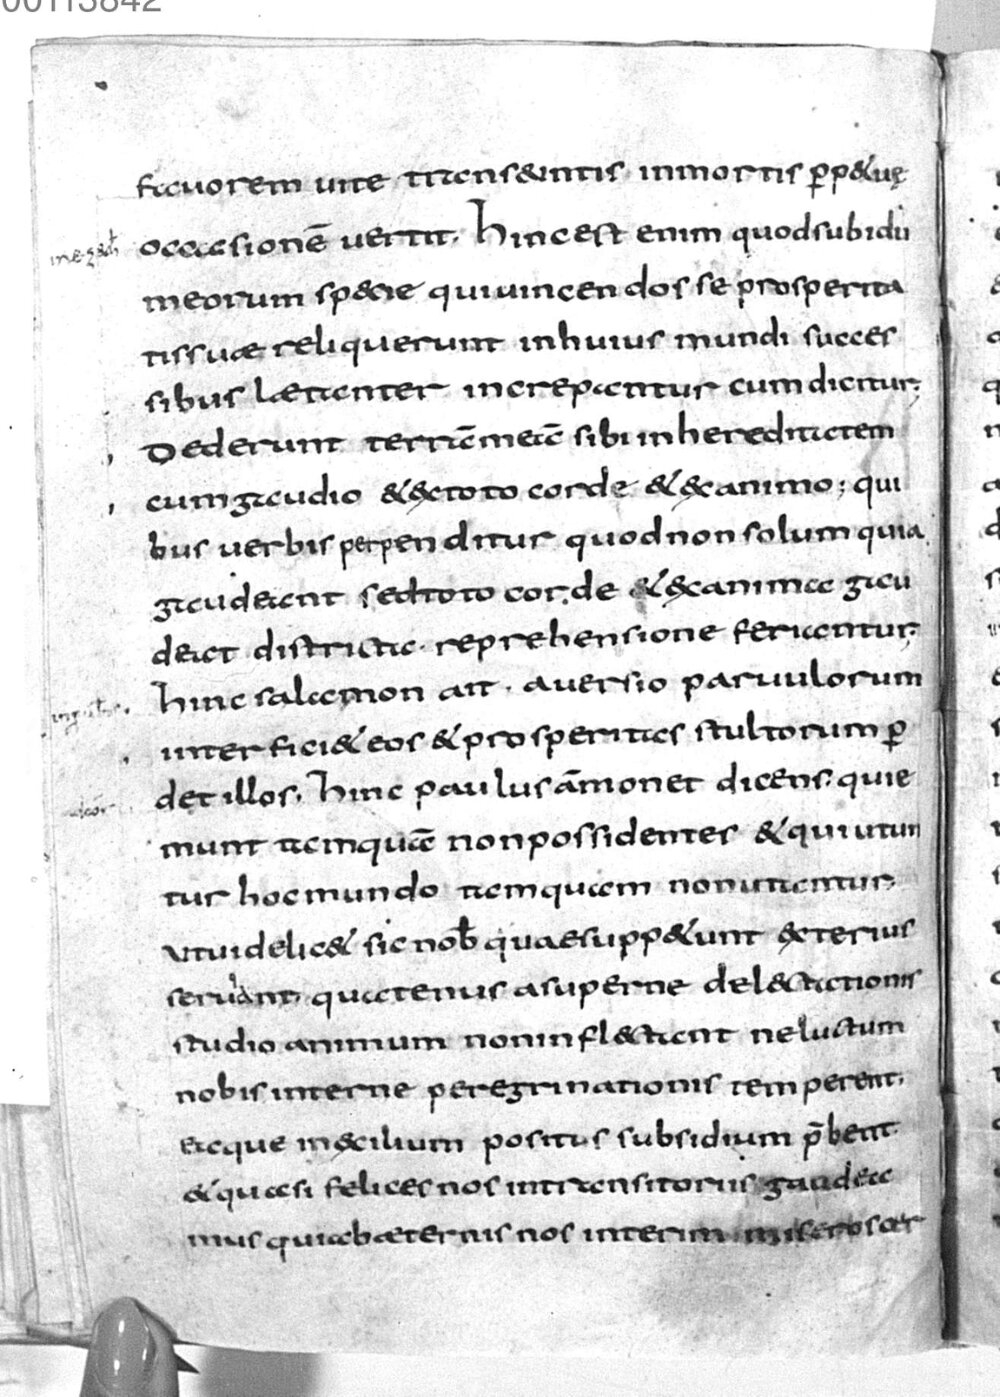 00113842
fauorem uite transeuntis in mortis ꝑp&uę
in ezech occasionē uertit. hinc est enim quod sub idu
meorum sp&cie qui uincendos se prosperita
tis suae reliquerunt in huius mundi succes
sibus laetanter increpantur cum dicitur;
Dederunt terrā meā sibi in hereditatem
cum gaudio & ex toto corde & ex animo; qui
bus uerbis perpenditur quod non solum quia
gaudeant sed toto corde & ex animo gau
deant districta reprehensione feriantur;
hinc salamon ait. auersio paruulorum
interfici& eos & prosperitas stultorum ꝑ
det illos. hinc paulus āmonet dicens. qui e
munt tamquā non possidentes & qui utun
tur hoc mundo tamquam non utantur;
ut uidelic& sic nob̄ quae supp&unt exterius
seruiant quatenus a superne delectationis
studio animum non inflectant ne luctum
nobis interne peregrinationis temperent.
eaque in exilium positus subsidium p̄bent
& quasi felices nos in transitoriis gaudea
mus qui ab aeternis nos interim miseros cer